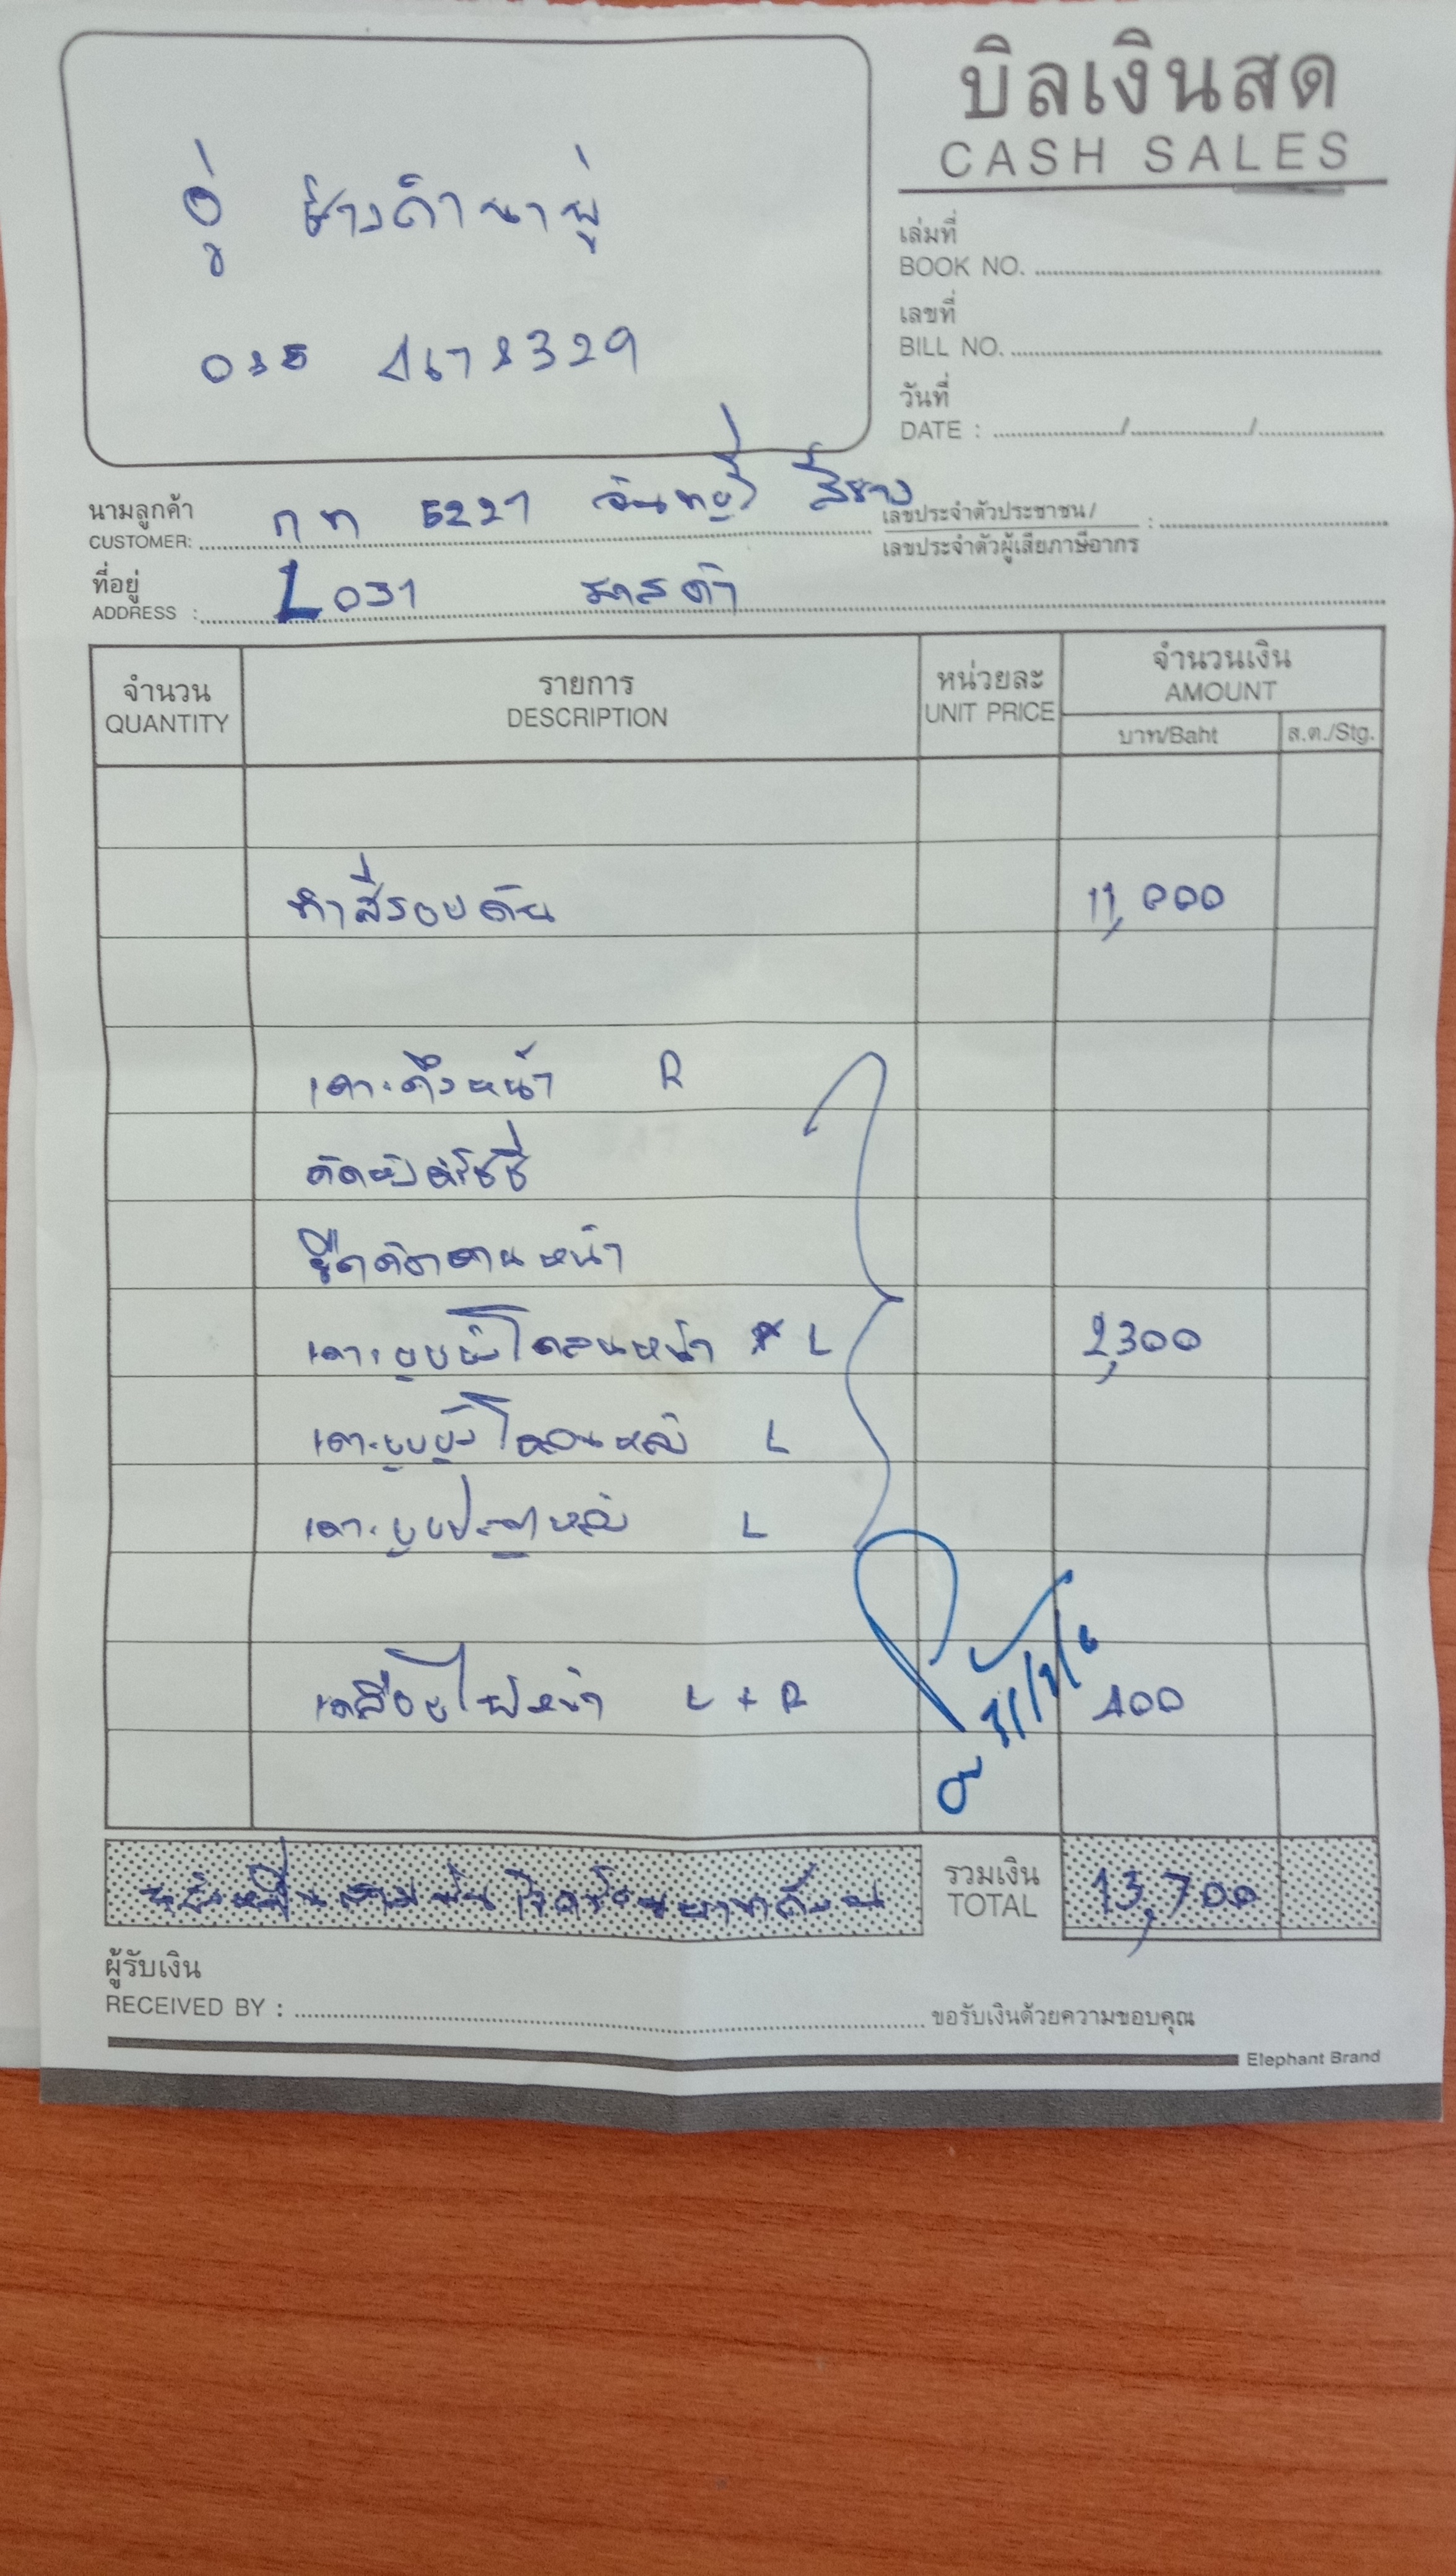 บิลเงินสด
CASH SALES
อู่ ช่างดำนาปู่
เล่มที่
BOOK NO.
เลขที่
BILL NO.
วันที่
DATE : / /
นามลูกค้า
CUSTOMER: กท 5227 จันทบุรี สีขาว
เลขประจำตัวประชาชน /
เลขประจำตัวผู้เสียภาษีอากร :
ที่อยู่
ADDRESS : L031 มาสด้า
จำนวน
QUANTITY
รายการ
DESCRIPTION
หน่วยละ
UNIT PRICE
จำนวนเงิน
AMOUNT
บาท/Baht
ส.ต./Stg.
ทำสีรอบคัน 11,000
เคาะดึงหน้า R
ยึดคัดคานหน้า
หน้า L 2,300
L
เคาะบุบประตูหลัง L
เคลือบไฟหน้า L + R 400
หนึ่งหมื่นสามพันเจ็ดร้อยบาทถ้วน
รวมเงิน
TOTAL 13,700
ผู้รับเงิน
RECEIVED BY :
ขอรับเงินด้วยความขอบคุณ
Elephant Brand